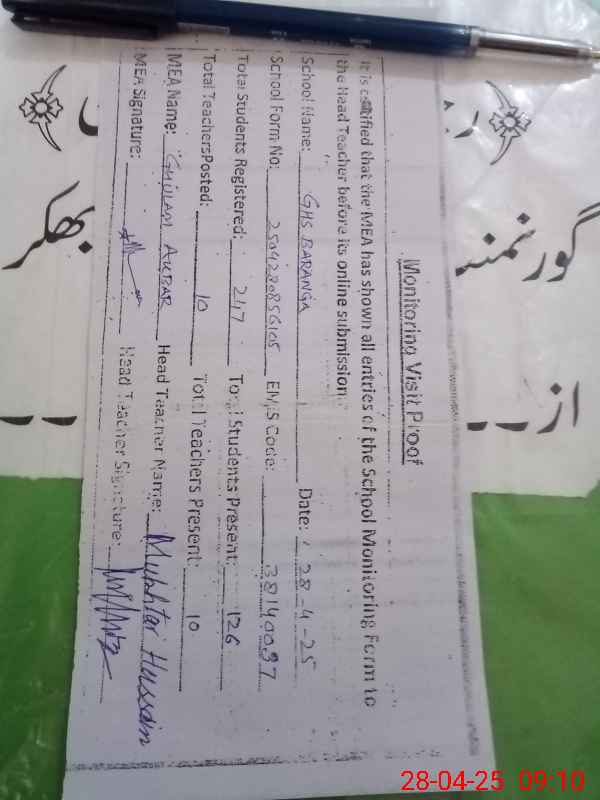 Monitoring Visit Proof
It is certified that the MEA has shown all entries of the School Monitoring Form to
the Head Teacher before its online submission.
School Name: GHS BARANGA Date: 28-4-25
School Form No: EMIS Code: 38140097
Total Students Registered: 247 Total Students Present: 126
Total TeachersPosted: 10 Total Teachers Present: 10
MEA Name: GHULAM AKBAR Head Teacher Name: Mukhtar Hussain
MEA Signature: Head Teacher Signature:
گورنمنٹ
بھکر
از--
28-04-25 09:10